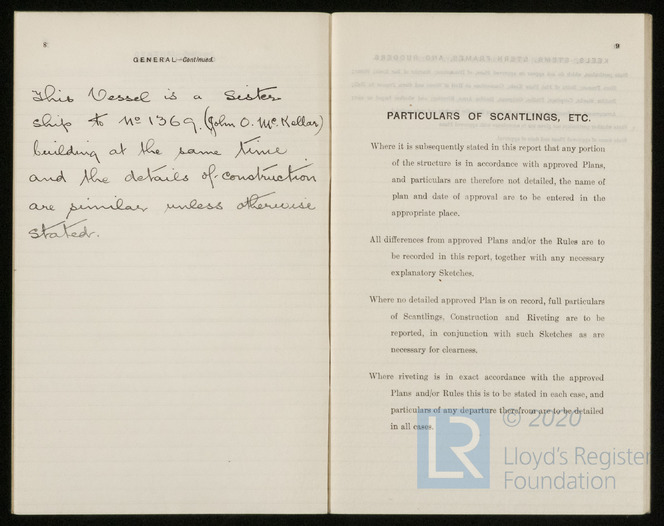 8
GENERAL—Continued.
This Vessel is a Sister
ship to No 1369. (John O. Mc. Kellar)
building at the same time
and the details of construction
are similar unless otherwise
stated.
9
PARTICULARS OF SCANTLINGS, ETC.
Where it is subsequently stated in this report that any portion
of the structure is in accordance with approved Plans,
and particulars are therefore not detailed, the name of
plan and date of approval are to be entered in the
appropriate place.
All differences from approved Plans and/or the Rules are to
be recorded in this report, together with any necessary
explanatory Sketches.
Where no detailed approved Plan is on record, full particulars
of Scantlings, Construction and Riveting are to be
reported, in conjunction with such Sketches as are
necessary for clearness.
Where riveting is in exact accordance with the approved
Plans and/or Rules this is to be stated in each case, and
particulars of any departure therefrom are to be detailed
in all cases.
LR
© 2020
Lloyd's Register
Foundation